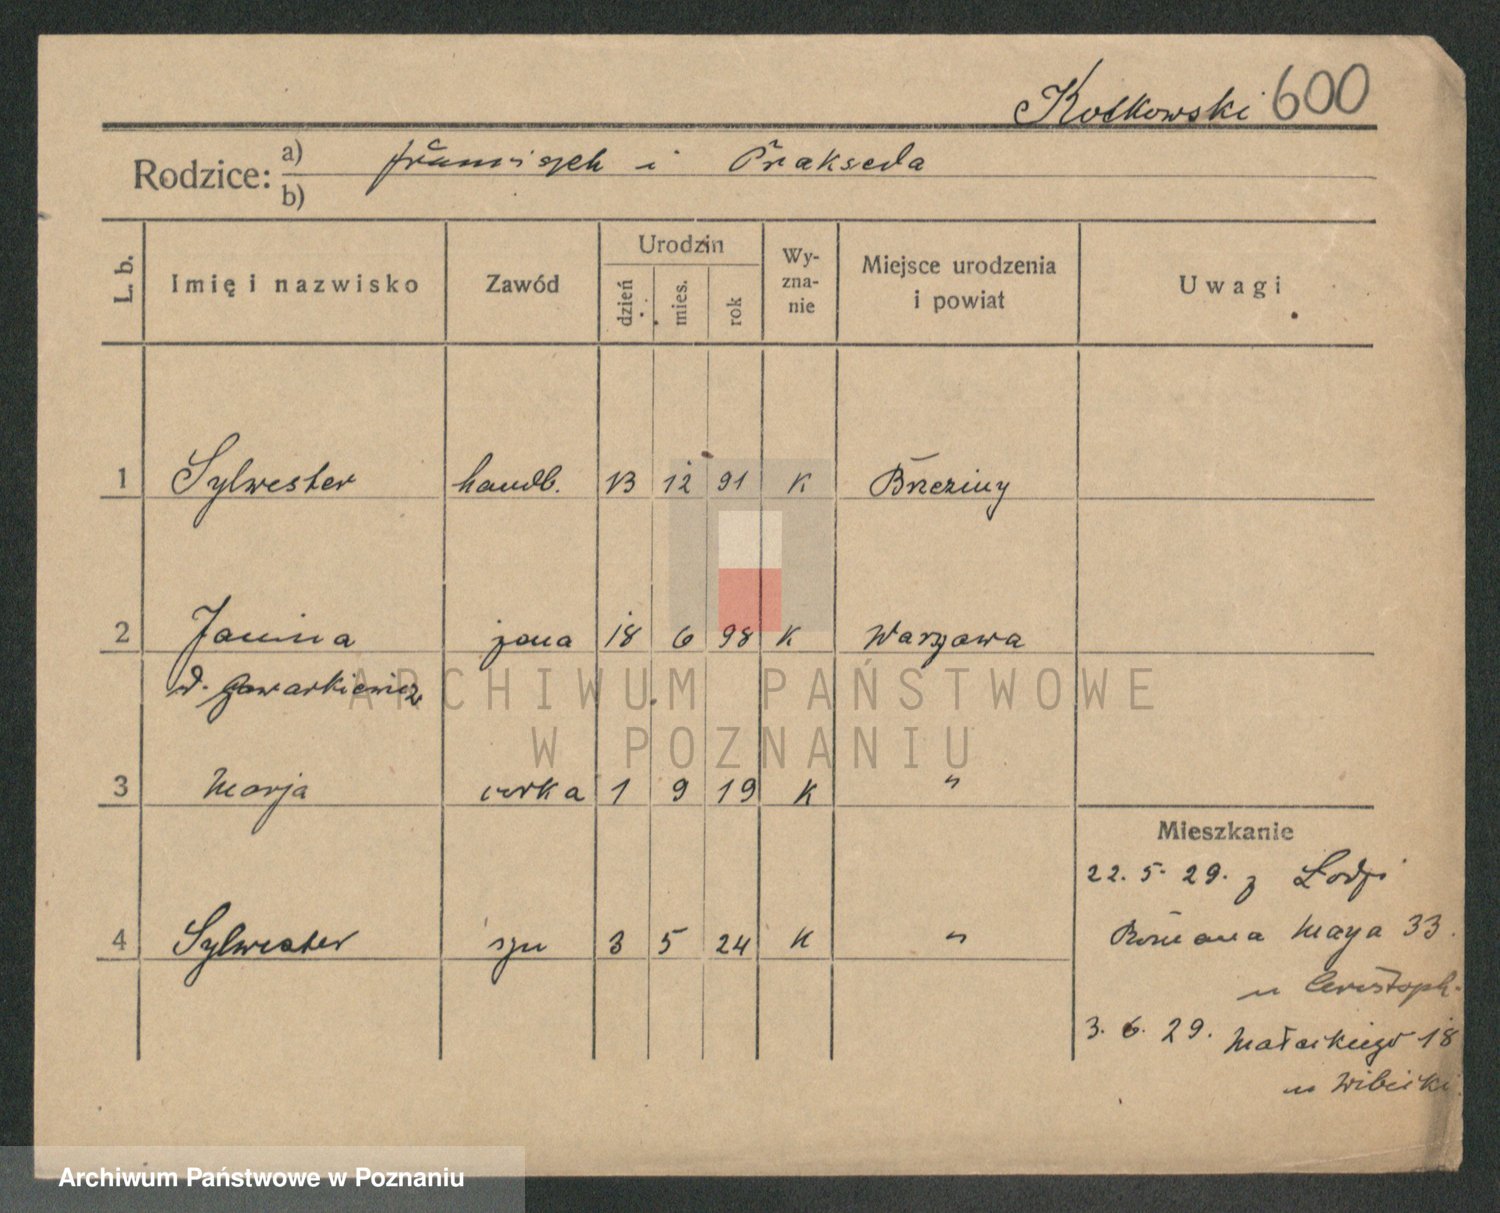 Kotkowski 600
Rodzice: a) Franciszek i Prakseda
b)
L. b. Imię i nazwisko Zawód Urodzin dzień mies. rok Wy-zna-nie Miejsce urodzenia i powiat Uwagi
1 Sylwester handl. 13 12 91 K Brzeziny
2 Janina żona 18 6 98 K Warszawa
d. Gawarkiewicz
ARCHIWUM PAŃSTWOWE
W POZNANIU
3 Marja córka 1 9 19 K "
Mieszkanie
22. 5. 29. z Łodzi
4 Sylwester syn 3 5 24 K "
Romana Maya 33.
u
3. 6. 29. Małeckiego 18
u Wibicki
Archiwum Państwowe w Poznaniu